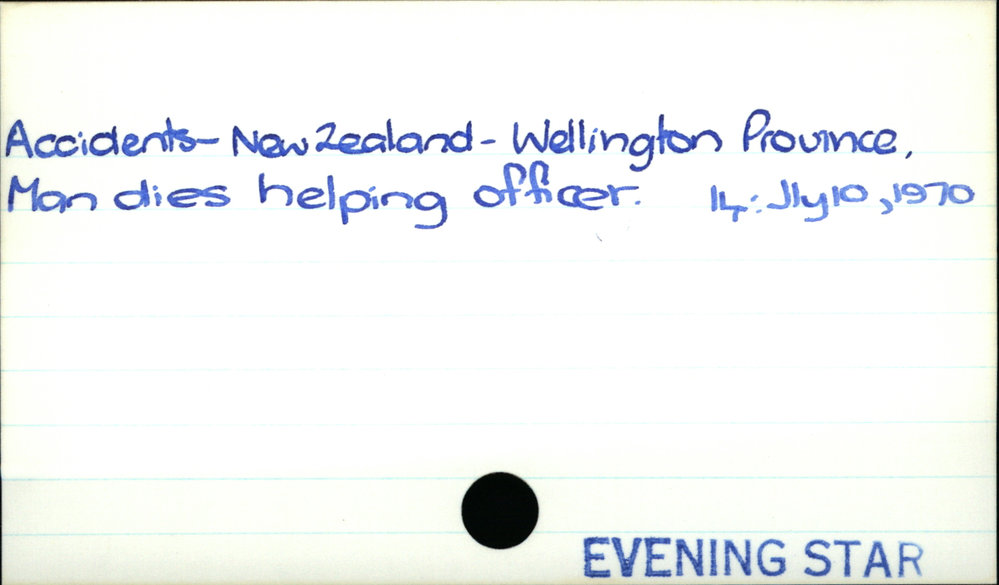 Accidents - New Zealand - Wellington Province.
Man dies helping officer. 14: Jly 10, 1970
EVENING STAR